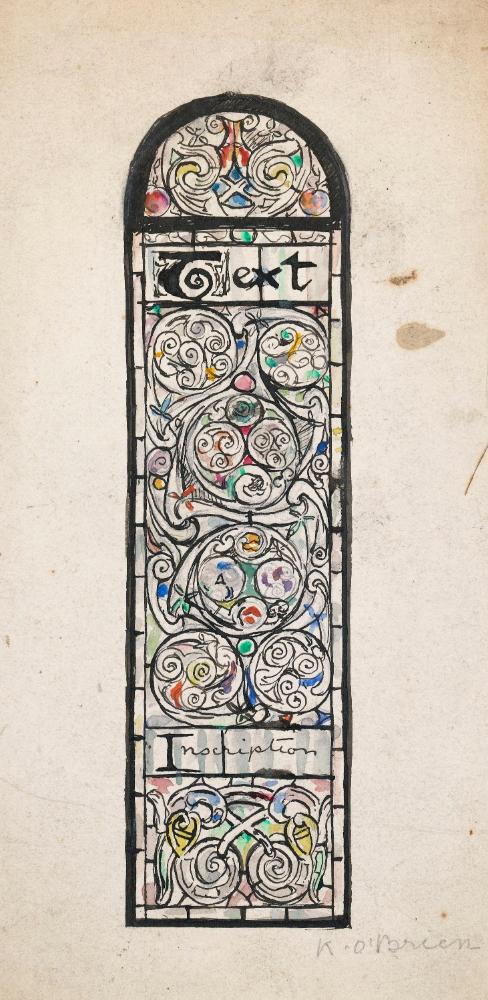 Text
Inscription
K. O'Brien